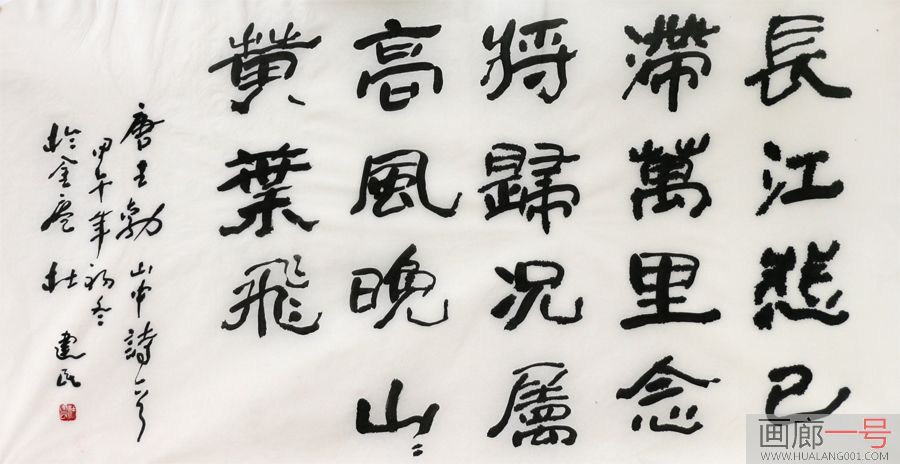 長江悲已
滯萬里念
將歸况屬
高風晚山〻
黄葉飛
唐王勃山中詩一首
甲午年初冬
於金 杜建民
画廊一号
WWW.HUALANG001.COM